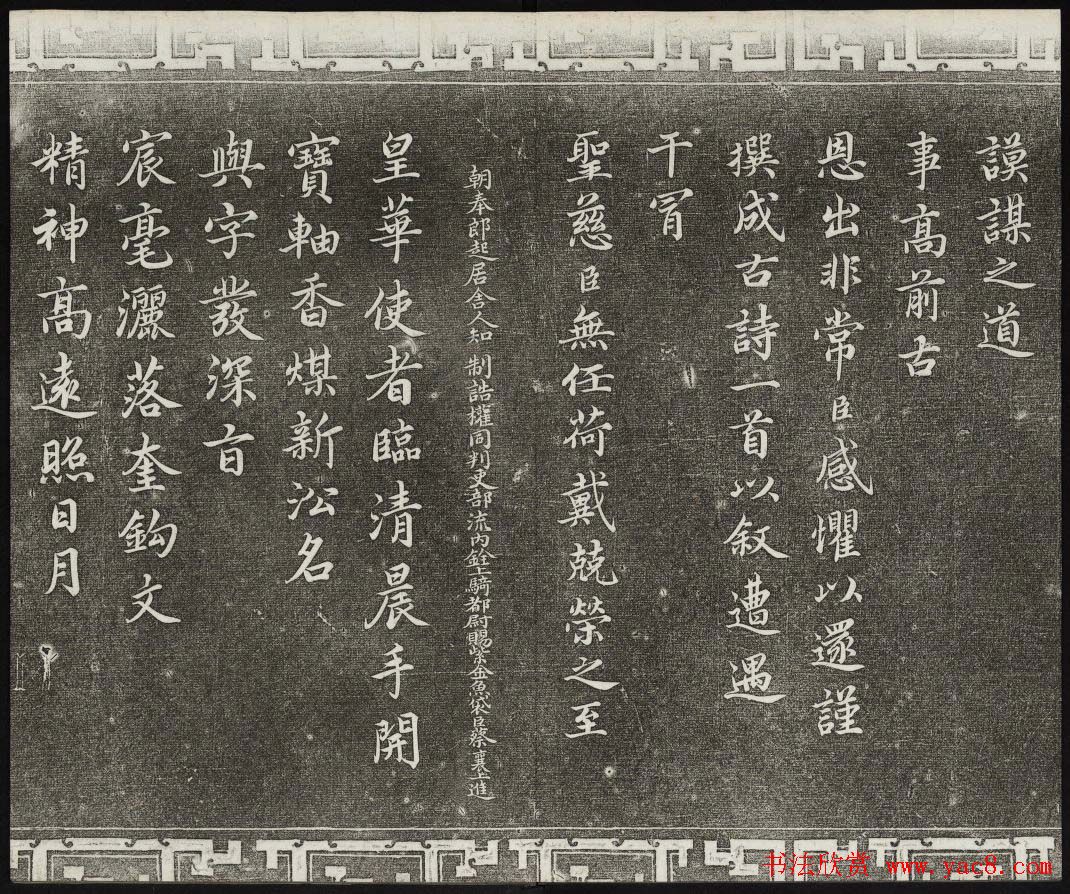 謨謀之道
事高前古
恩出非常臣感懼以還謹
撰成古詩一首以叙遭遇
干冒
聖慈臣無任荷戴兢榮之至
朝奉郎起居舍人知 制誥權同判吏部流內銓上騎都尉賜紫金魚袋臣蔡襄上進
皇華使者臨清晨手開
寶軸香煤新沿名
與字發深旨
宸毫灑落奎鈎文
精神高遠照日月
书法欣赏 www.yac8.com